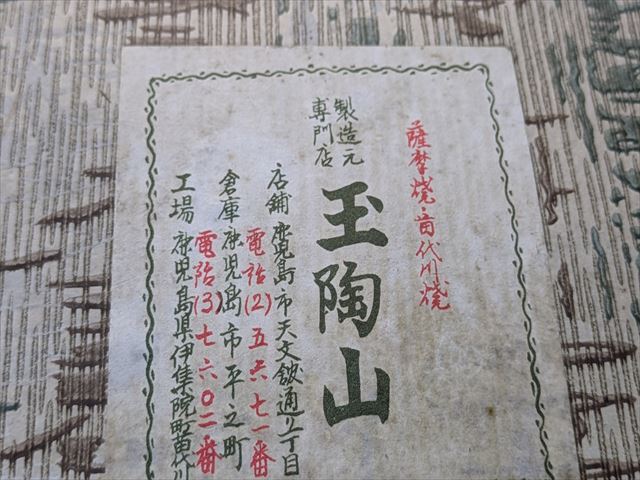 薩摩焼・苗代川焼
製造元
専門店
玉陶山
店舗 鹿児島市天文館通二丁目
電話(2)五六七一番
倉庫 鹿児島市平之町
電話(3)七六〇二番
工場 鹿児島県伊集院町苗代川